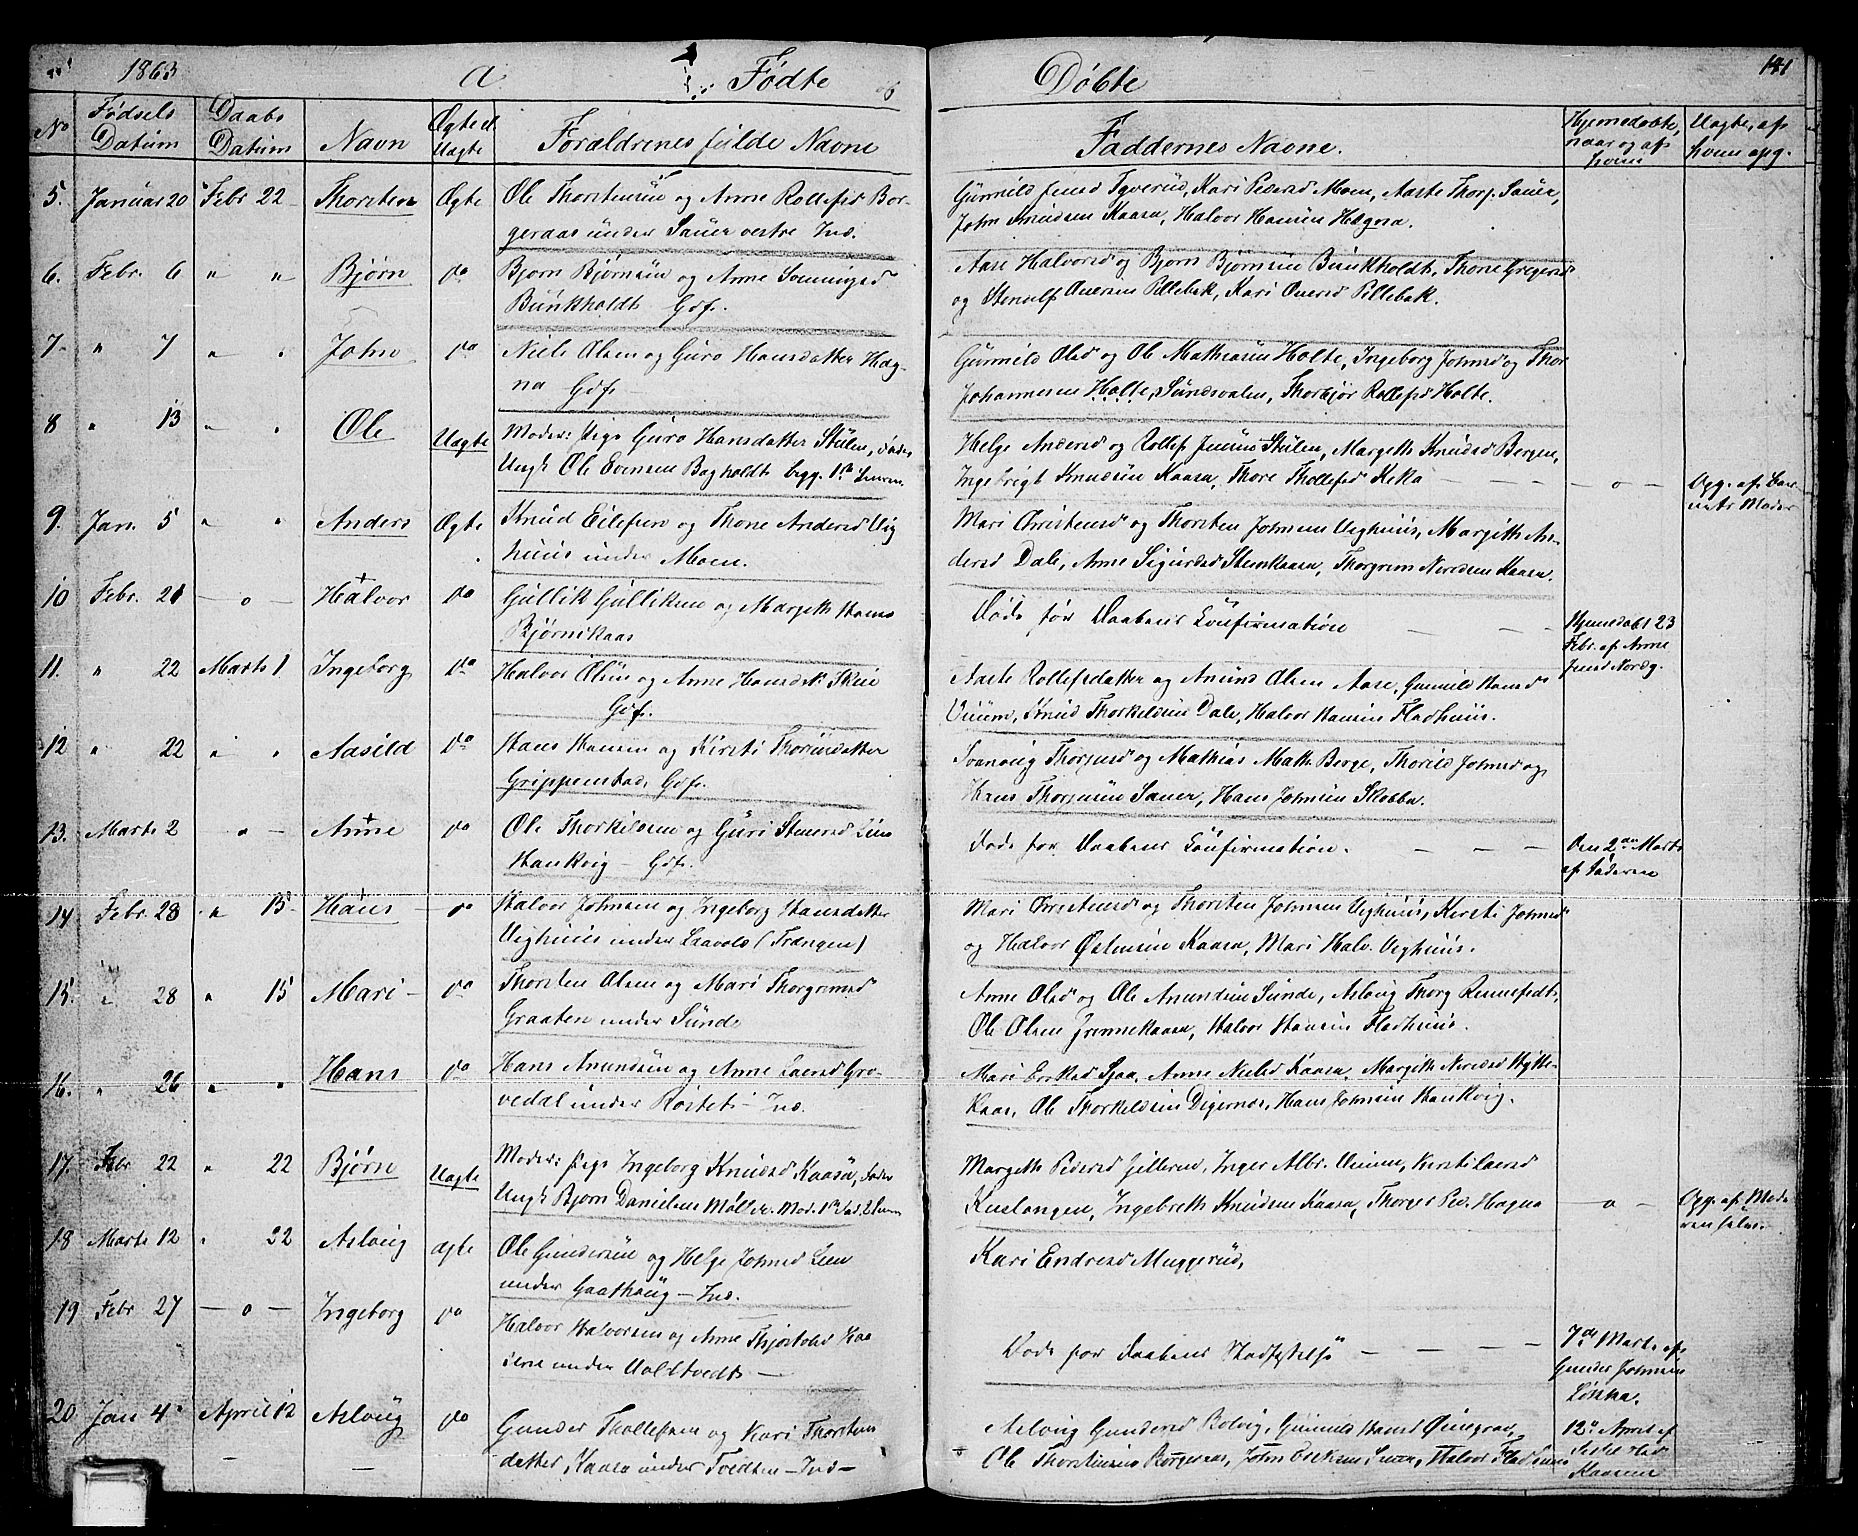 1863 a Fødte og Døbte 141
No Fødsels Datum Daabs Datum Navn Ægte el. Uægte Forældrenes fulde Navne Faddernes Navne. Hjemmedøbte, naar og af hvem Uægte, af hvem opg.
5. Januar 20 Febr 22 Thorsten Ægte Ole Thorstensen og Anne Rollefsd Bor-
geraas under Sauer vestre Ind.
Gunnild Jensd Kari Pedersd Moen, Aaste Thorg. Sauer,
John Knudsen Kaasa, Halvor Hansen Hægna.
6. Febr. 6 " " Bjørn do Bjørn Bjørnsen og Anne
Bunkholdt Gdf.
Aase Halvorsd og Bjørn Bjørnsen Bunkholdt, Thone Gregersd
og Stenulf Oversen Pellebek, Kari Oversd Pellebek.
7. " 7 " " John do Niels Olsen og Guro Hansdatter Hæg-
na Gdf.
Gunnild Olsd og Ole Mathisen Holte, Ingeborg Johnsd og Thor
Johannesen Holte, Sundsvalen, Thorbjør Rollefsd Holte.
8 " 13 " " Ole Uægte Moder: Pige Guro Hansdatter Stulen, Fader
Ungk. Ole Evensen Bagholdt begg. 1ste
Helge Andersd og Rollef Jensen Stulen, Margeth Knudsd Bergen,
Ingebrigt Knudsen Kaasa, Thore Thollefsd Keka — — — — o —
Opg. af Bar-
nets Moder
9. Jan. 5 " " Anders Ægte Knud Eilefsen og Thone Andersd Vig
huus under Moen.
Mari Christensd og Thorsten Johnsen Veghuus, Margith An-
dersd Dale, Anne Sigurdsd Stenkaasa, Thorgrim Neridsen Kaasa.
10 Febr. 21 — o — Halvor do Gullik Gulliksen og Margeth Hans
Bjørnikaas
Døde før Daabens Confirmation — — —
Hjemmedøbt 23
Febr. af Anne
Jensd Nordg.
11. " 22 Marts 1 Ingeborg do Halvor Olsen og Anne Hansdt. Skoe
Gdf.
Aaste Rollefsdatter og Amund Olsen Aase, Gunnild Hansd
Viuum, Knud Thorkildsen Dale, Halvor Hansen Fladhuus.
12 " 22 " " Aasild do Hans Hansen og Kirsti Thorsdatter
Grippenstad, Gdf.
Svanaug Thorsensd og Mathias Math. Berge, Thorild Johnsd og
Hans Thorsensen Sauer, Hans Johnsen Skobba.
13. Marts 2 — " — Anne do Ole Thorkildsen og Guri Stenersd
Hankvig — Gdf.
Døde før Daabens Confirmation. — — —
Den 2den Marts
af Faderen
14 Febr. 28 " 15 Hans do Halvor Johnsen og Ingeborg Hansdatter
Veighuus under Laavold (Trængen)
Mari Christensd og Thorsten Johnsen Veghuus, Kirsti Johnsd
og Halvor Østensen Kaasa, Mari Halv. Veghuus.
15. " 28 " 15 Mari — do Thorsten Olsen og Mari Thorgrimsd
Graaten under Sunde
Anne Olsd og Ole Amundsen Sunde, Aslaug Thorg
Ole Olsen Grennekaasa, Halvor Hansen Fladhuus.
16. " 26 " " Hans do Hans Amundsen og Anne Larsd Gro-
vedal under Rostet — Ind.
Mari Anne Nielsd Kaasa, Margith Neridsd Hytte-
kaas, Ole Thorkildsen Digernæs, Hans Johnsen Hankvig.
17. Febr 22 " 22 Bjørn Uægte Moder: Pige Ingeborg Knudsd Kaasa, Fader
Ungk Bjørn Danielsen
Margeth Pedersd Inger Albr. Kirsti Larsd
Kuslangen, Ingebreth Knudsen Kaasa, Thorger Ped. Hægna — o —
Opg. af Mode
ren selv.
18 Marts 12 " 22 Aslaug ægte Ole Gundersen og Helge Johnsd Lien
under Gaathaug — Ind.
Kari Endresd Muggerud,
19 Febr 27 — o — Ingeborg do Halvor Halvorsen og Anne Thjostolsd Kaa
sene under Uvaldtvedt —
Døde før Daabens Stadfæstelse — — — —
7de Marts af
Gunder Johnsen
20 Jan 4 April 12 Aslaug do Gunder Thollefsen og Kari Thorstens
datter, Kaasa under Tvedten — Ind —
Aslaug Gundersd Bolvig, Gunnild Hansd
Ole Thorstensen Borgeraas, John Halvor
12te April af